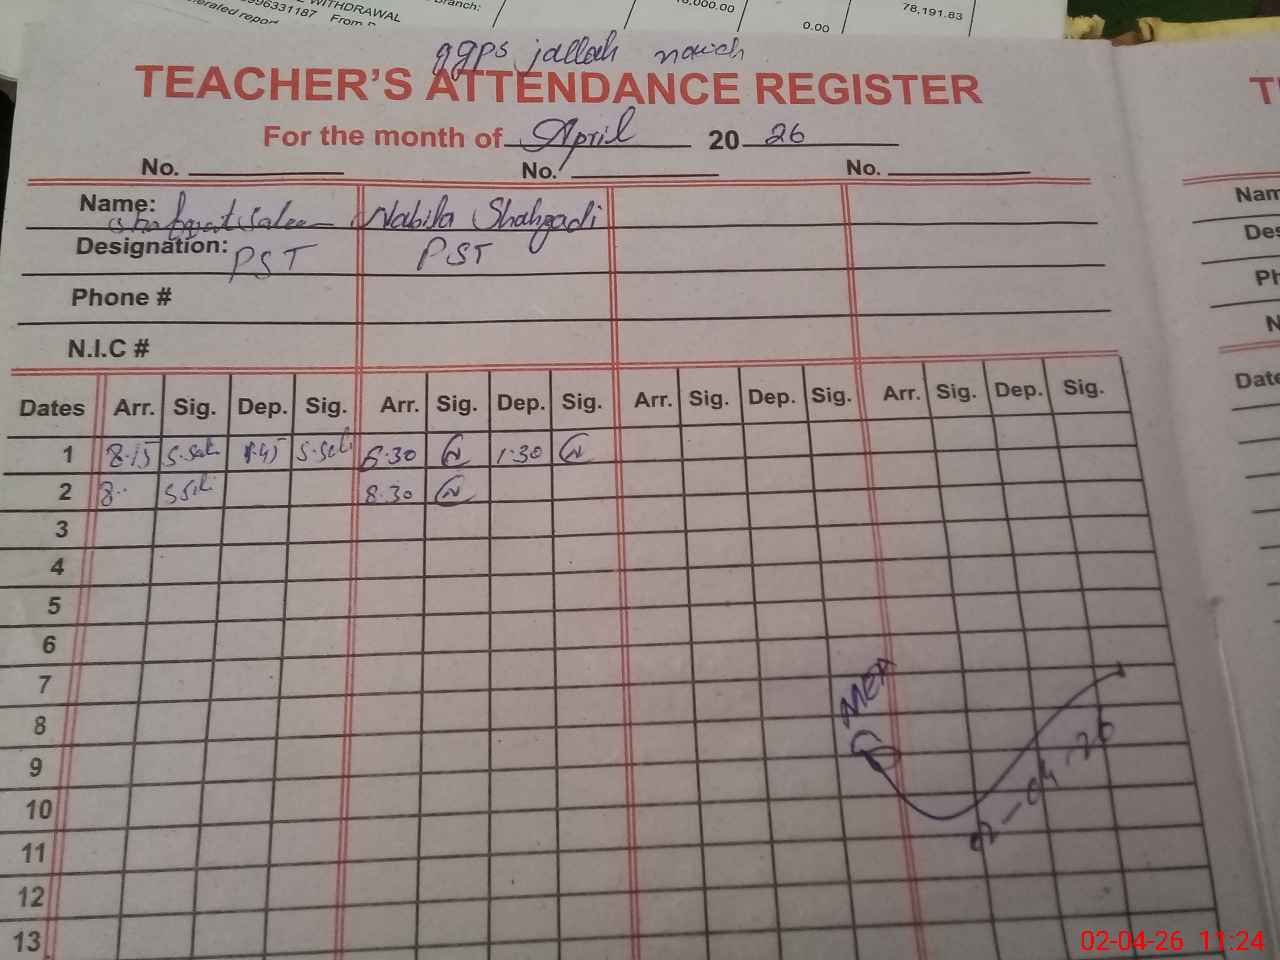 WITHDRAWAL
996331187 From
erated report
Branch:
0.00
78,191.83
ggps jallah
TEACHER'S ATTENDANCE REGISTER
For the month of April 2026
No. No. No.
Name: Nabila Shahzadi
Designation: PST PST
Phone #
N.I.C #
Dates Arr. Sig. Dep. Sig. Arr. Sig. Dep. Sig. Arr. Sig. Dep. Sig. Arr. Sig. Dep. Sig.
1 8.15 1.30
2 8.30
3
4
5
6
7
8
9
10
11
12
13
MEA
02-04-26
Date
02-04-26 11:24